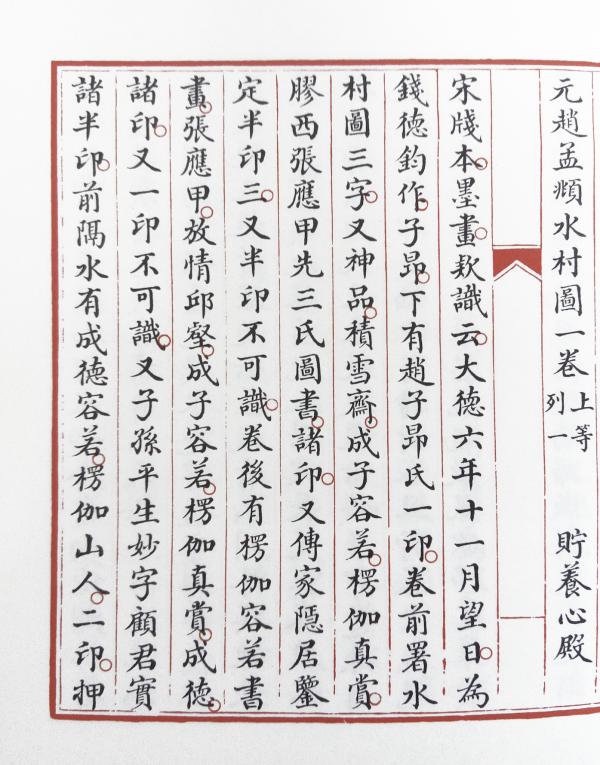 元趙孟頫水村圖一卷 上等列一 貯養心殿
宋牋本。墨畫。款識云。大德六年十一月望日。為
錢德鈞作。子昂。下有趙子昂氏一印。卷前署水
村圖三字。又神品。積雪齋。成子容若。楞伽真賞。
膠西張應甲先三氏圖書。諸印。又傳家隱居鑒
定半印三。又半印不可識。卷後有楞伽容若書
畫。張應甲。放情邱壑。成子容若。楞伽真賞。成德。
諸印。又一印不可識。又子孫平生妙字顧君實
諸半印。前隔水有成德容若。楞伽山人。二印。押